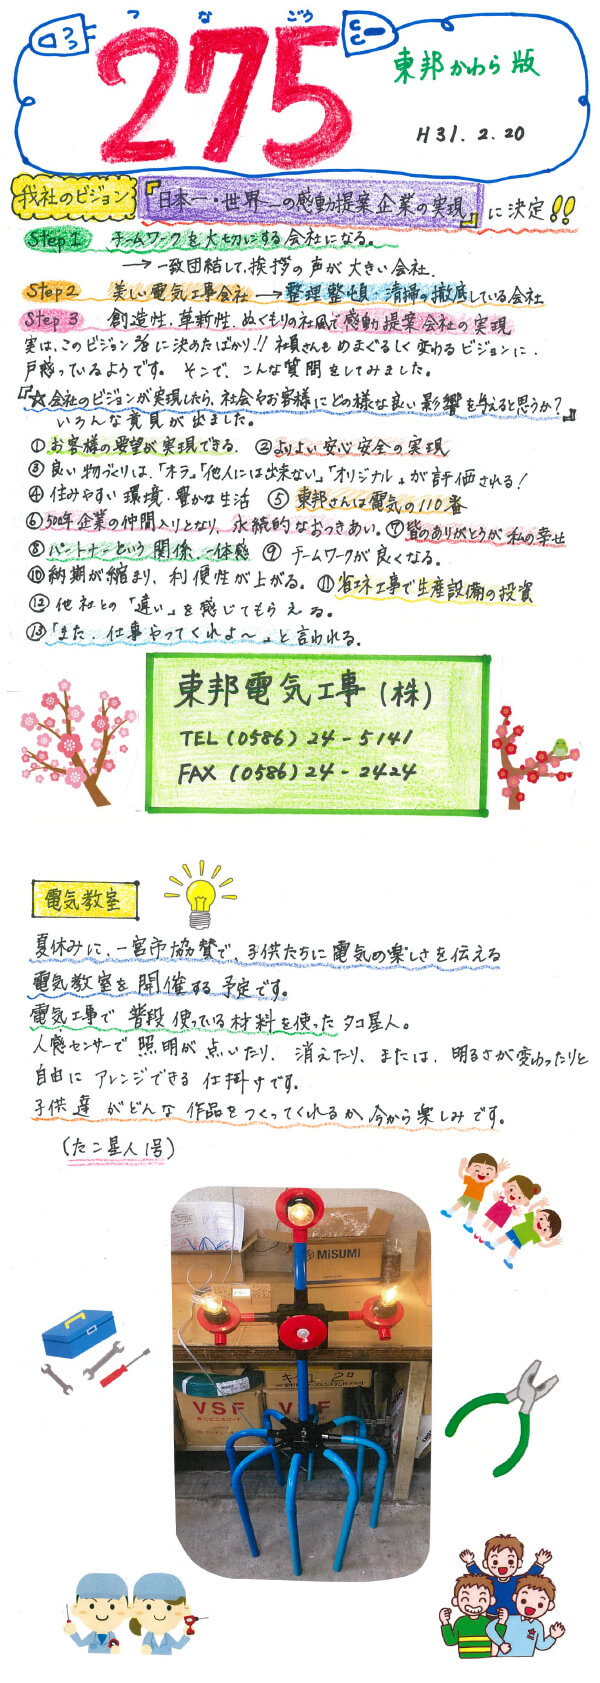 つ な ごう
275
東邦かわら版
H31.2.20
我社のビジョン 『日本一・世界一の感動提案企業の実現』に決定!!
Step1 チームワークを大切にする会社になる。
→一致団結して、挨拶の声が大きい会社.
Step2 美しい電気工事会社→整理整頓・清掃の徹底している会社
Step3 創造性.革新性.ぬくもりの社風で感動提案会社の実現
実は、このビジョン 決めたばかり!!社員さんもめまぐるしく変わるビジョンに、
戸惑っているようです。そこで、こんな質問をしてみました。
『☆会社のビジョンが実現したら、社会やお客様にどの様な良い影響を与えると思うか?』
いろんな意見が出ました。
①お客様の要望が実現できる. ②よりよい安心安全の実現
③良い物づくりは、「オラ」「他人には出来ない」「オリジナル」が評価される!
④住みやすい環境・豊かな生活 ⑤東邦さんは電気の110番
⑥50年企業の仲間入りとなり、永続的なおつきあい。⑦皆のありがとうが私の幸せ
⑧パートナーという関係、一体感 ⑨チームワークが良くなる。
⑩納期が縮まり、利便性が上がる。⑪省エネ工事で生産設備の投資
⑫他社との「違い」を感じてもらえる。
⑬「また、仕事やってくれよ〜」と言われる.
東邦電気工事(株)
TEL(0586)24-5141
FAX(0586)24-2424
電気教室
夏休みに、一宮市協賛で、子供たちに電気の楽しさを伝える
電気教室を開催する予定です。
電気工事で普段使っている材料を使ったタコ星人。
人感センサーで照明が点いたり、消えたり、または、明るさが変わったりと
自由にアレンジできる仕掛けです。
子供達がどんな作品をつくってくれるか、今から楽しみです。
(たこ星人1号)
MiSUMi
VSF
VSF